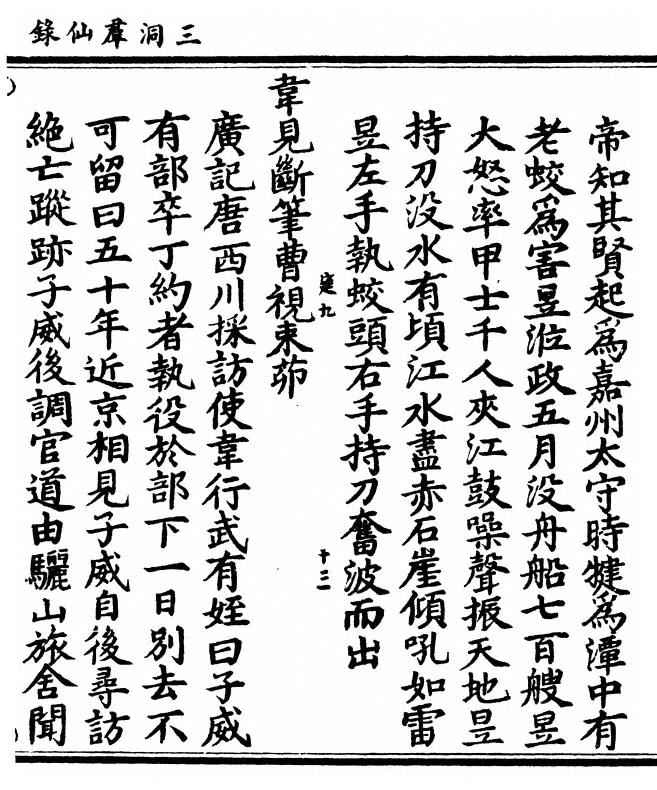 三洞羣仙錄
帝知其賢起爲嘉州太守時犍爲潭中有
老蛟爲害昱涖政五月没舟船七百艘昱
大怒率甲士千人夾江鼓噪聲振天地昱
持刀没水有頃江水盡赤石崖傾吼如雷
昱左手執蛟頭右手持刀奮波而出
筵九
十二
韋見斷筆曹視束茆
廣記唐西川採訪使韋行武有姪曰子威
有部卒丁約者執役於部下一日别去不
可留曰五十年近京相見子威自後尋訪
絶亡蹤跡子威後調官道由驪山旅舍聞